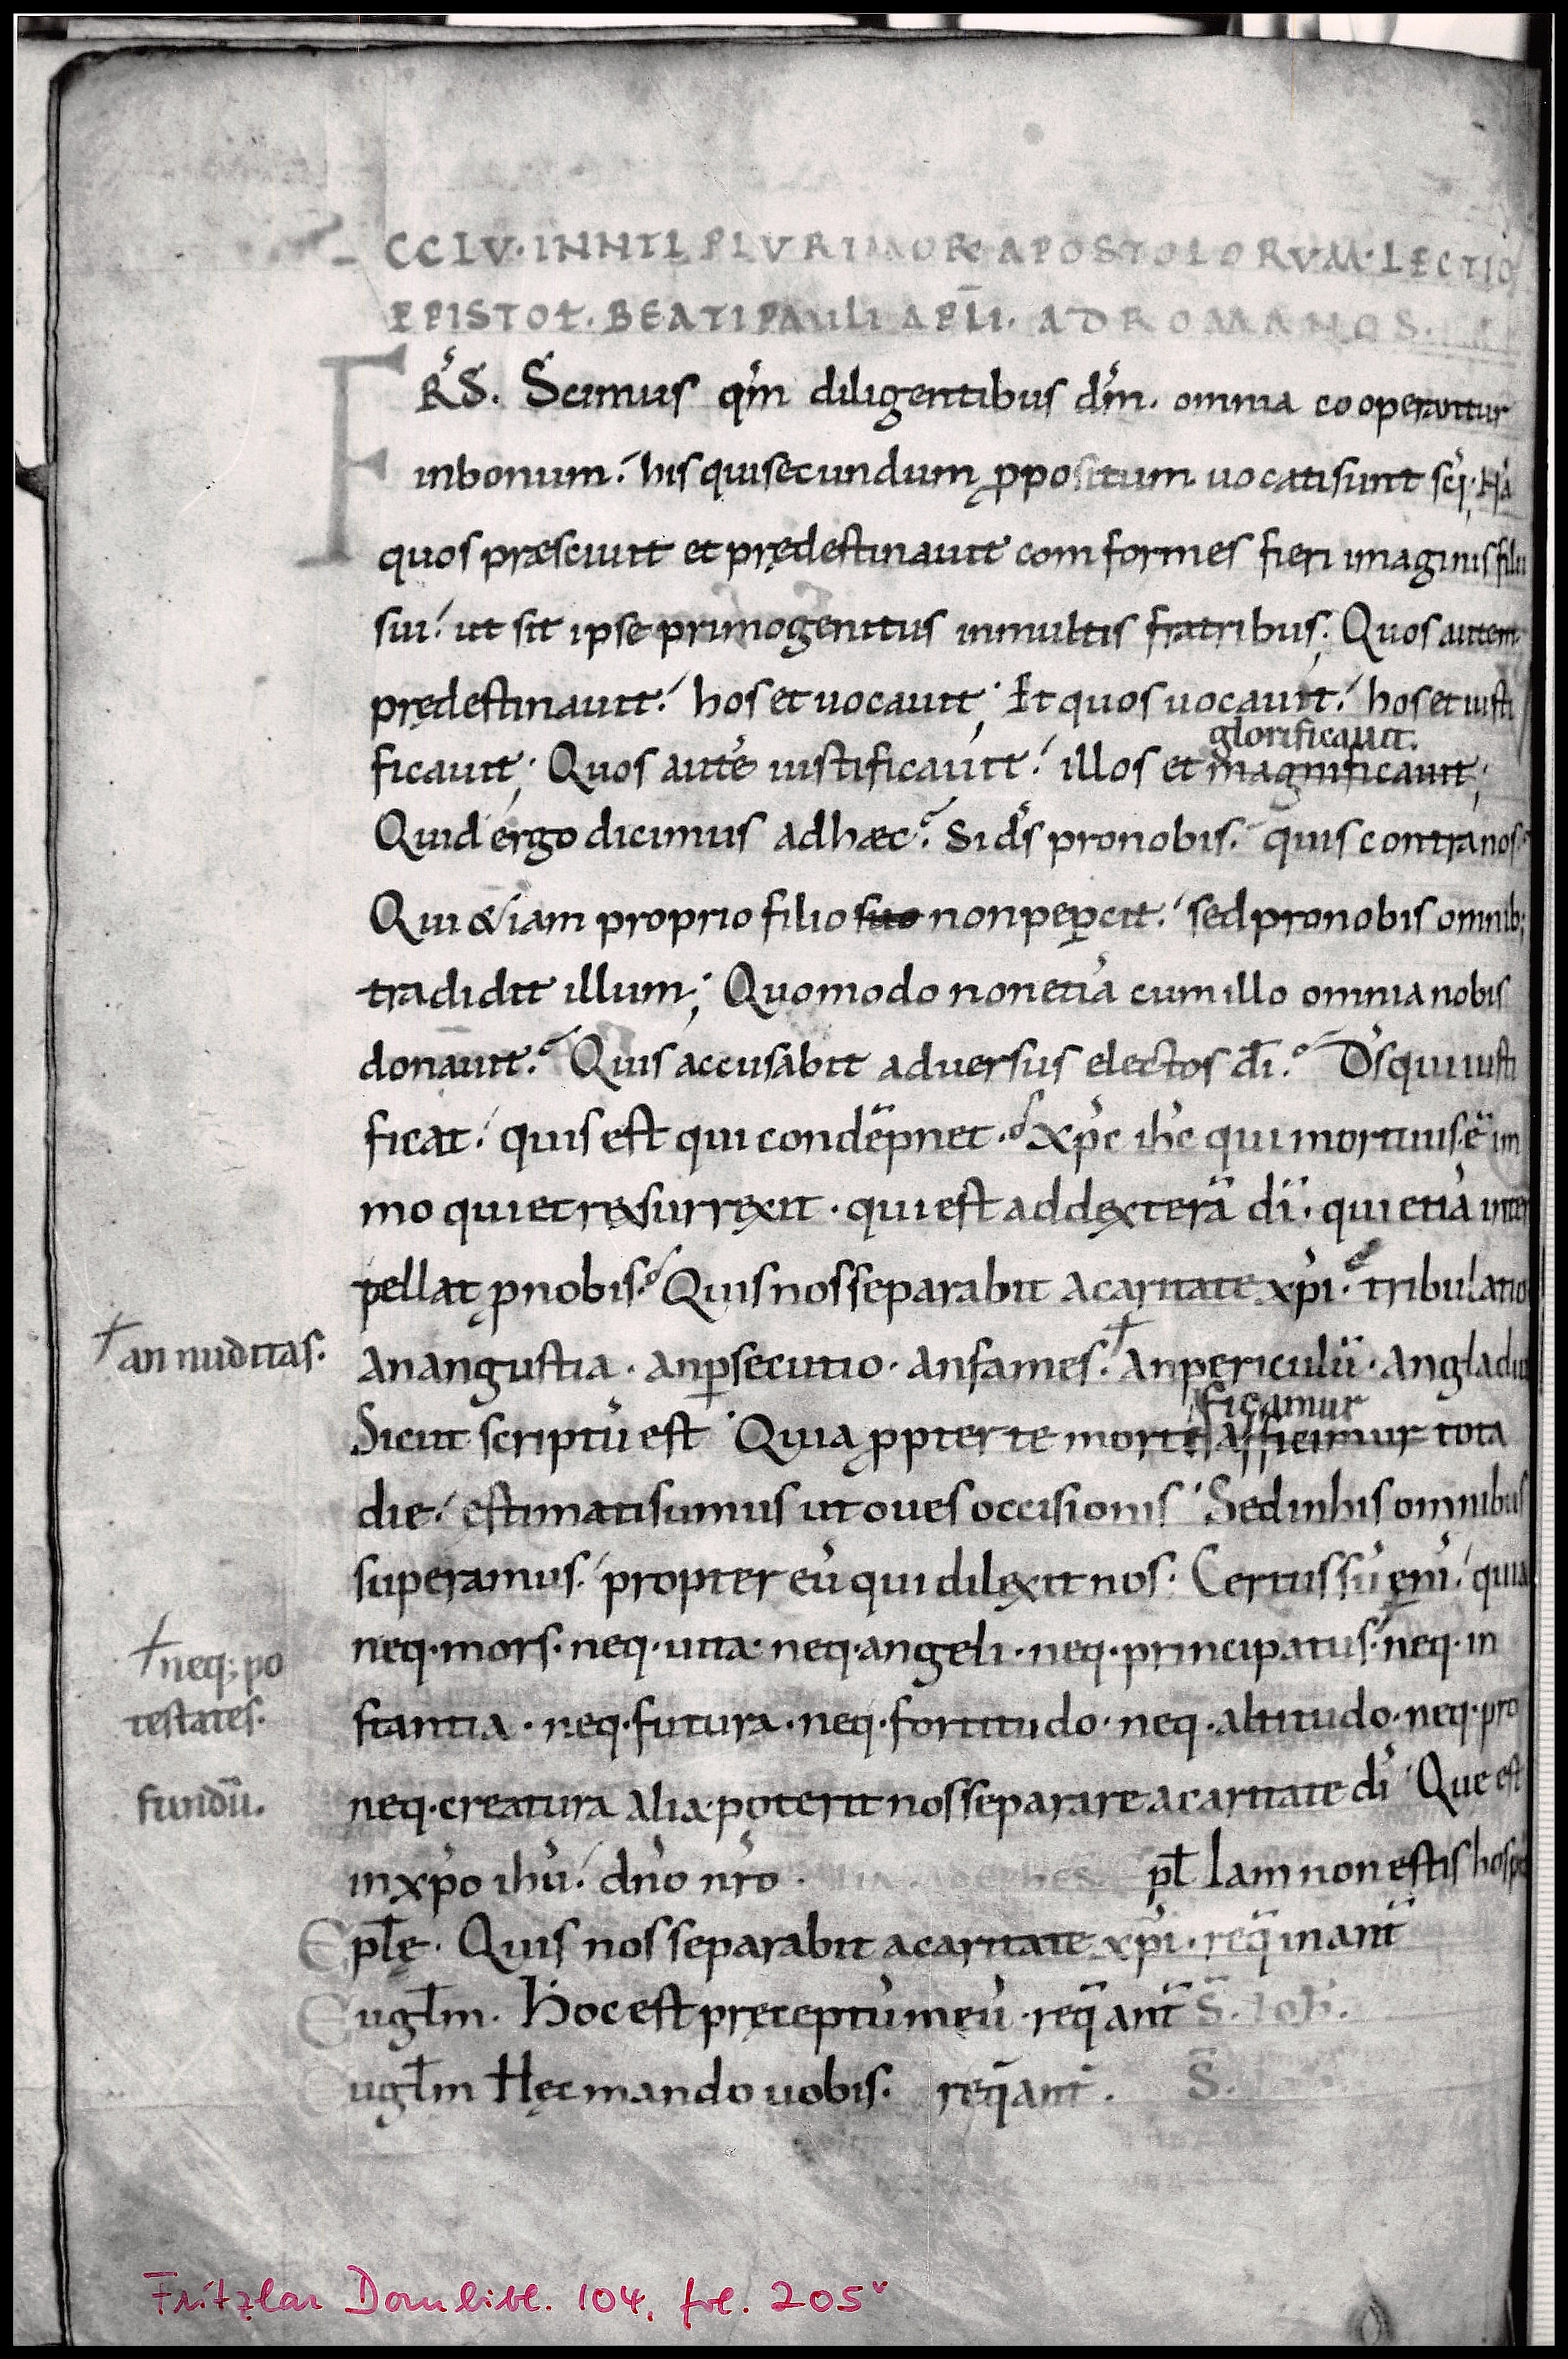 CCLV. IN NTL PLVRIMOR APOSTOLORVM. LECTIO
EPISTOŁ. BEATI PAULI APLI. AD ROMANOS.
FRS. Scimus qm̄ diligentibus dm̄. omnia cooperantur
in bonum. his qui secundum ꝓpositum uocati sunt sci.
quos præsciuit et prędestinauit comformes fieri imaginis filii
sui. ut sit ipse primogenitus in multis fratribus; Quos autem
prędestinauit. hos et uocauit; Et quos uocauit. hos et iusti
glorificauit.
ficauit; Quos autē iustificauit. illos et magnificauit;
Quid ergo dicimus ad hæc? Si ds̄ pro nobis. quis contra nos?
Qui &iam proprio filio suo non peꝑcit. sed pro nobis omnib;
tradidit illum; Quomodo non etiā cum illo omnia nobis
donauit? Quis accusabit aduersus electos dī? Ds̄ qui iusti
ficat. quis est qui condēpnet? xp̄c ihc̄ qui mortuus ē im
mo qui et resurrexit. qui est ad dexterā dī. qui etiā inter
pellat ꝓ nobis? Quis nos separabit a caritate xp̄i? tribulatio
† an nuditas.
an angustia. an ꝑsecutio. an fames. † an periculū. an gladiu
ficamur
Sicut scriptū est. Quia ꝓpter te morte afficimur tota
die. estimati sumus ut oues occisionis. Sed in his omnibus
superamus. propter eū qui dilexit nos. Certus sū enī. quia
neq. mors. neq. uita. neq. angeli. neq. principatus. neq. in
† neq; po
testates.
stantia. neq. futura. neq. fortitudo. neq. altitudo. neq. pro
fundū.
neq. creatura alia poterit nos separare a caritate dī. Que est
in xp̄o ihū. dn̄o nr̄o. pł Iam non estis hosp
Epłę. Quis nos separabit a caritate xp̄i. req̄ in ant̄
Eugłm. Hoc est pręceptū meū. req̄ ant̄ S. Ioh̄.
ugłm Hęc mando uobis. req̄ ant̄. S.
Fritzlar Dombibl. 104, fol. 205v